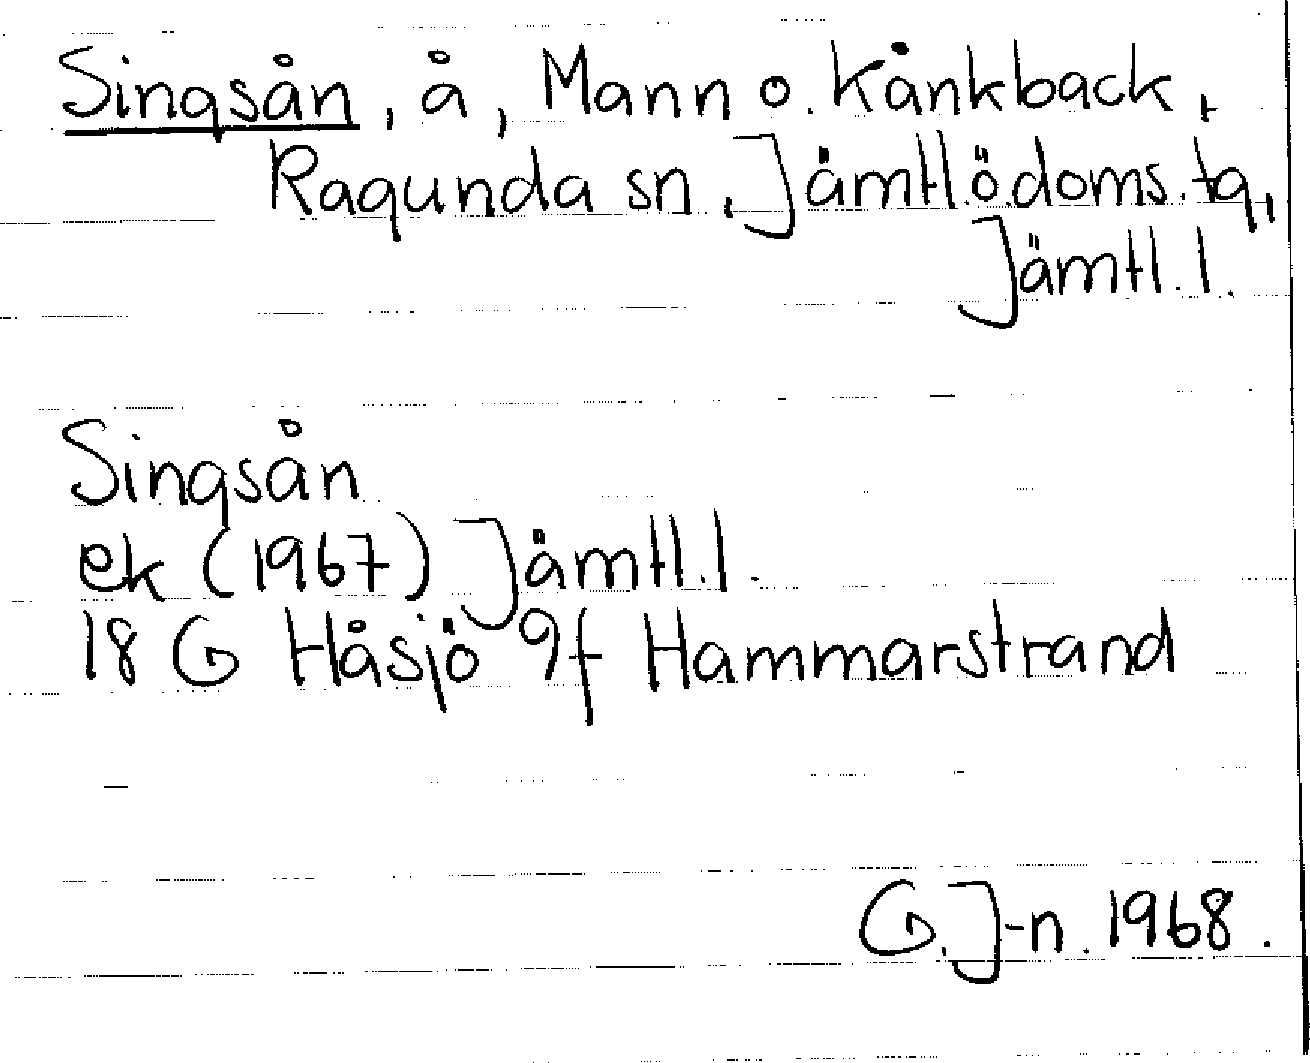 Singsån, å, Mann o. Kånkback,
Ragunda sn, Jämtl.ö.doms.tg,
Jämtl. l.
Singsån
ek (1967) Jämtl. l.
18 G Håsjö 9f Hammarstrand
G. J-n. 1968.